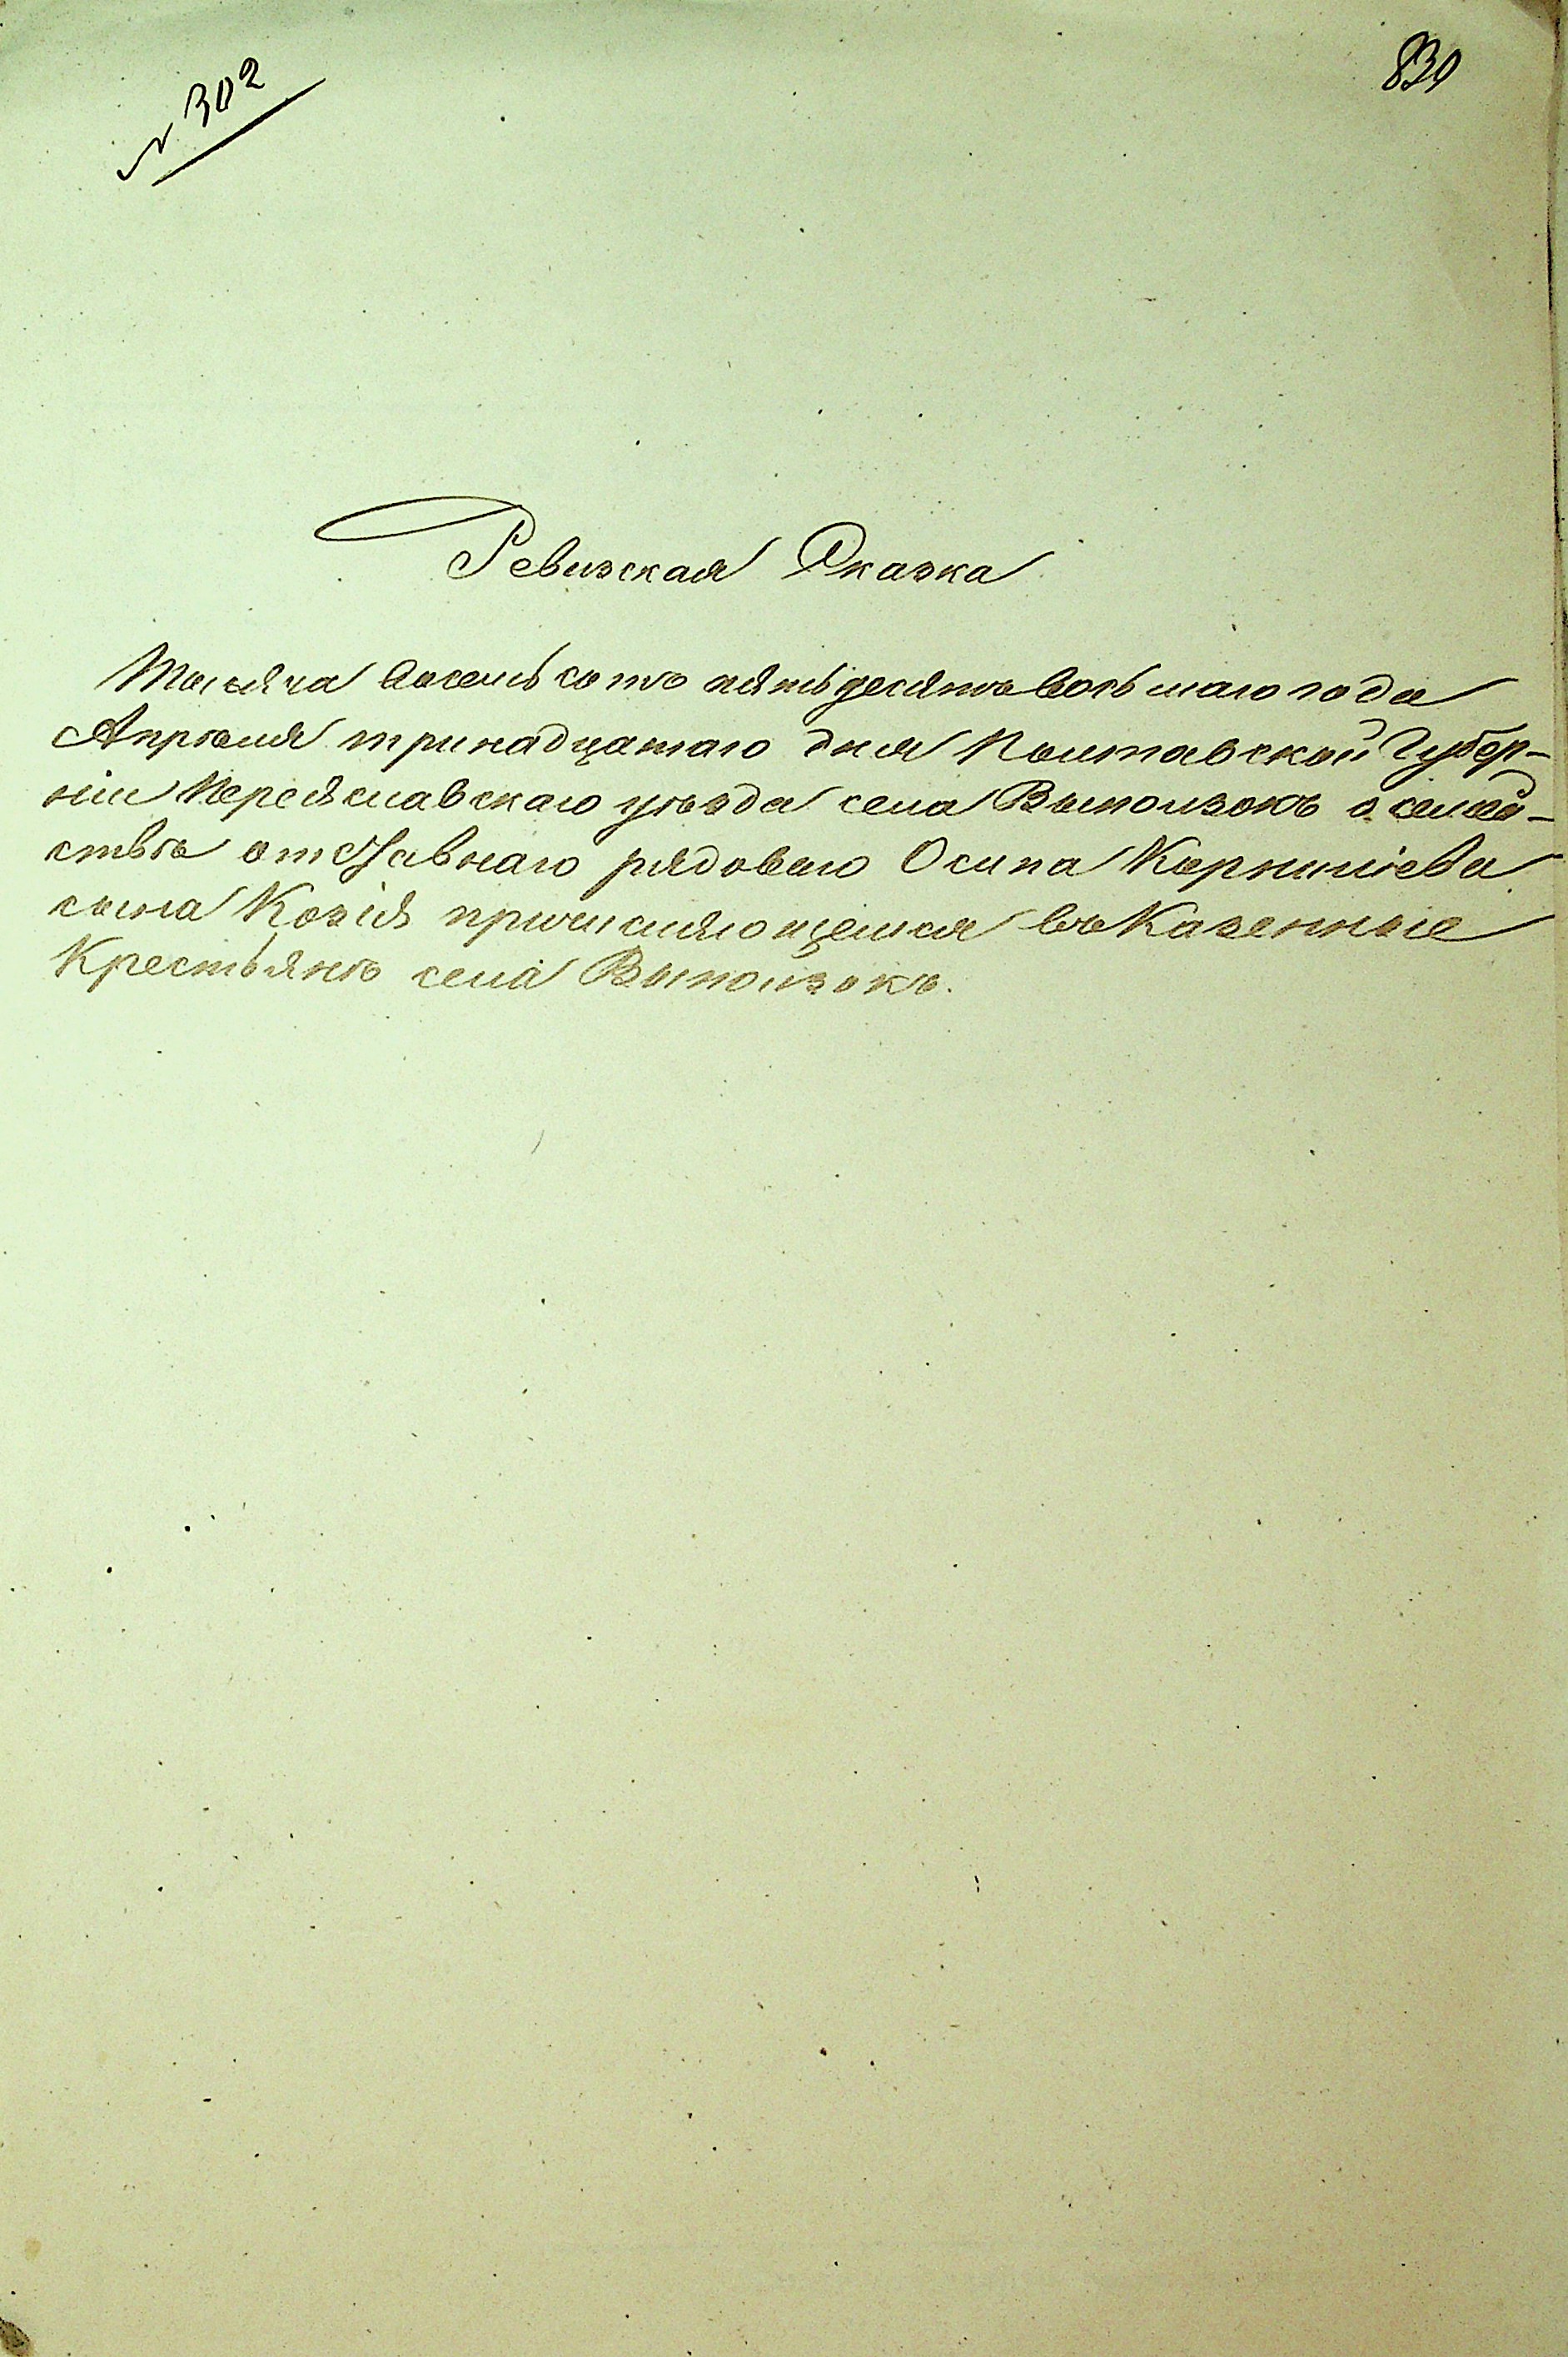 № 302
830
Ревизская Сказка
Тысяча восемь сотъ пятьдесятъ восьмаго года
Апрѣля тринадцатаго дня Полтавской Губер-
ніи Переяславскаго уѣзда села Выползокъ о семей-
ствѣ отставнаго рядоваго Осипа Корнилiева
сына Козія причисляющемся въ Казенные
Крестьянѣ села Выползокъ.